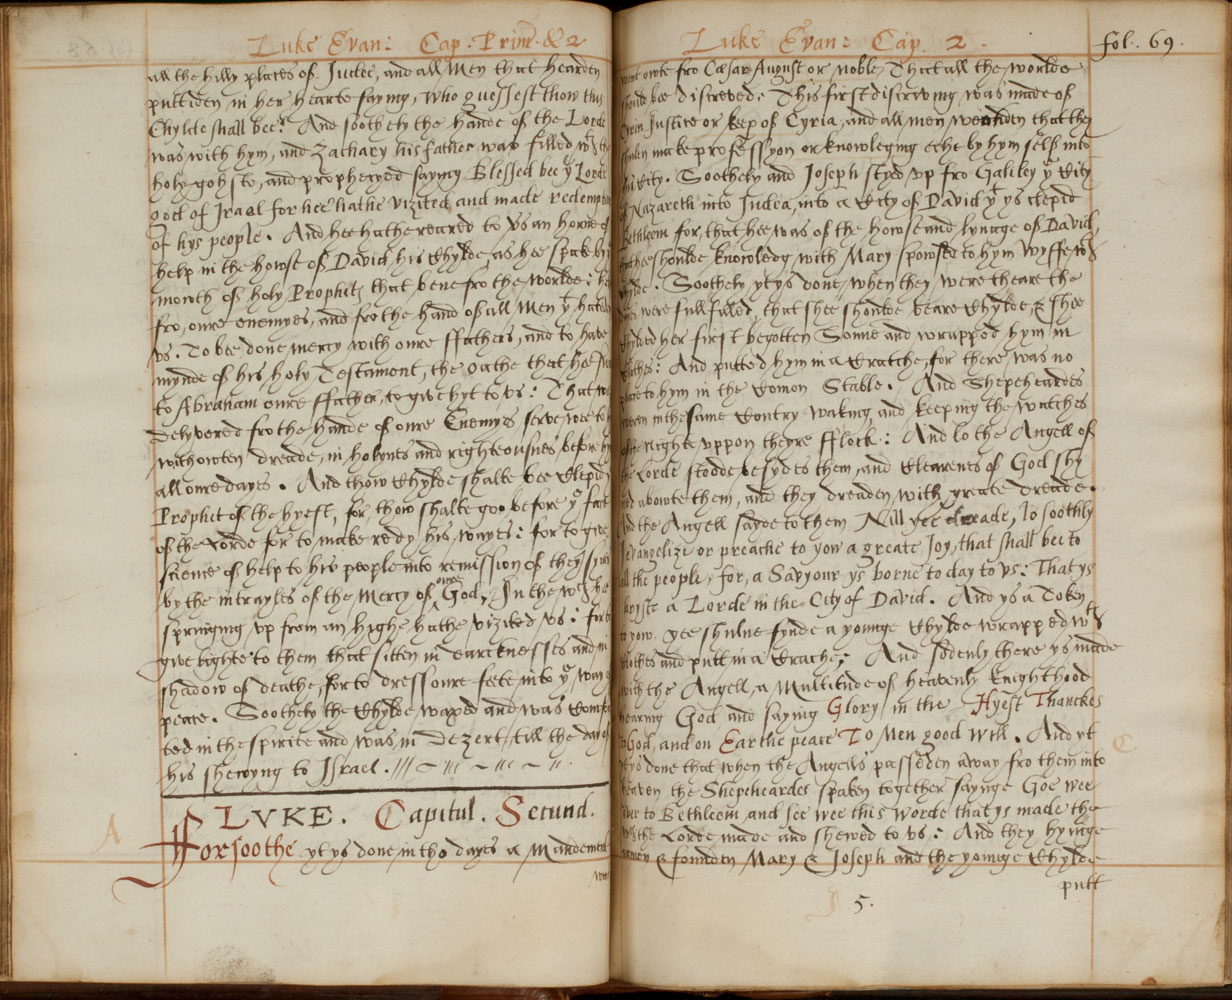 Luke Evan: Cap: Prim: & 2
all the hilly places of Judee, and all Men that hearden
puttiden in her hearte saying, who guessest thow this
Chylde shall bee? And soothely the hande of the Lorde
was with hym, and Zachary his father was filled wth the
holy gohste, and prophecyed saying Blessed bee ye Lorde
god of Israel for hee hathe vizited and made redempti
of hys people. And hee hathe reared to vs an horne of
help in the howse of David his Chylde, as hee spake by
mowth of holy Prophetz that bene fro the worlde: he
fro, oure enemyes, and fro the hand of all Men yt hated
vs. To bee done mercy with oure ffathers, and to have
mynde of his holy Testament, the oathe that hee
to Abraham oure ffather, to give hyt to vs: That
delyvered fro the hande of oure Enemyes serve, wee to
withowten dreade, in holynes and righteousnes, before
all oure dayes. And thow Chylde shalte bee Clepid
Prophet of the hyest, for, thow shalte goe before ye face
of the Lorde for to make redy his wayes: for to give
science of help to his people into remission of they
by the intrayles of the Mercy of oure God, In the wch he
springing vp from an highe hathe vizited vs: for to
give lighte to them that sitten in darcknesses and in
shadow of deathe, for to dress oure feete into ye way
peace. Soothely the Chylde waxed and was Comfor
ted in the spirite and was in dezert till the day of
his shewyng to Israel.
LVKE. Capitul. Secund.
Forsoothe yt ys done in tho dayes a Mandement
went
A
Luke Evan: Cap. 2.
fol. 69.
went owte fro Cæsar August or noble, That all the worlde
shulde bee discreved: This first discriving was made of
Cyrin Justice or keep of Cyria, and all men wenden that they
shulen make professyon or knowleging eche by hym self into
his City. Soothely and Joseph styed vp fro Galiley ye City
of Nazareth into Judea, into a City of David yt ys clepid
Bethleem for, that hee was of the howse and lynage of David,
that hee shoulde knowledg with Mary spowsed to hym wyffe wth
Chylde. Soothely yt ys done, when they were theare the
were fullfilled, that shee shoulde beare Chylde, & shee
Chylded her first begotten Sonne and wrapped hym in
Clothes: And putted hym in a Cratche, for there was no
place to hym in the Comon Stable. And Shepeheardes
weren in the same Contry waking and keeping the watches
of the nighte vppon theyre fflock: And lo the Angell of
the Lorde stoode besydes them, and Clearenes of God shy
ned abowte them, and they dreaden with greate dreade.
And the Angell sayde to them Nill yee dreade, lo soothly
I evangelize or preache to yow a greate Joy, that shall bee to
all the people, for, a Savyour ys borne to day to vs: That ys
Cryste a Lorde in the City of David. And ys a Token
to yow. yee shulne fynde a younge Chylde wrapped wth
Clothes and putt in a Crache; And sodenly there ys made
with the Angell, a Multitude of heavenly knighthood
hearing God and saying Glory in the Hyest Thanckes
to God, and on Earthe peace To Men good will. And yt
ys done that when the Angells passeden away fro them into
heaven the Shepeheardes spaken together sayinge Goe wee
over to Bethleem and see wee this worde that ys made the
the Lorde made and shewed to vs: And they hyinge
camen & founden Mary & Joseph and the younge Chylde
putt
C
5.